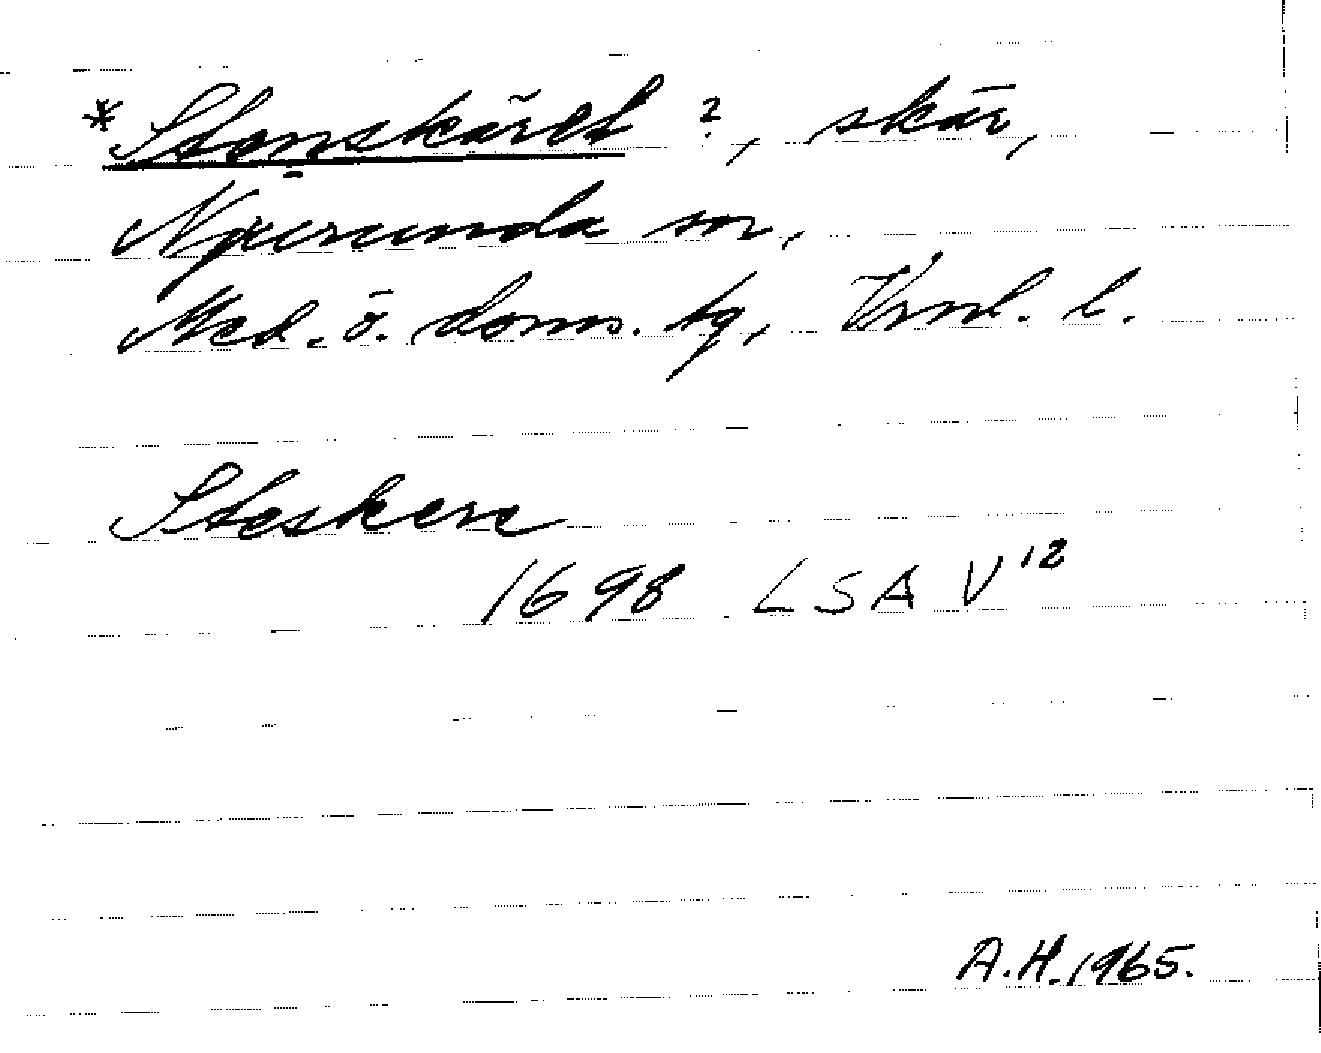 *Stenskäret ?, skär,
Njurunda sn,
Med. ö. doms. tg, Vrnl. l.
Steskere
1698 LSA V 12
A.H. 1965.